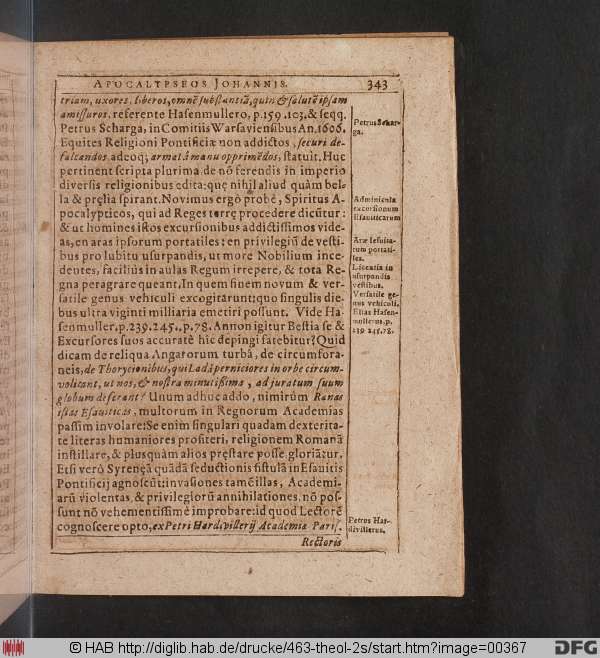 APOCALYPSEOS JOHANNIS. 343
triam, uxores, liberos, omnē substantiā, quin & salutē ipsam
amissuros, referente Hasenmullero, p. 159. 103. & seqq.
Petrus Scharga, in Comitiis Warsaviensibus An. 1606.
Equites Religioni Pontificiæ non addictos, securi de-
falcandos adeoq; armatâ manu opprimēdos, statuit. Huc
pertinent scripta plurima de nō ferendis in imperio
diversis religionibus edita: quę nihil aliud quàm bel-
la & pręlia spirant. Novimus ergò probè, Spiritus A-
pocalypticos, qui ad Reges terrę procedere dicūtur:
& ut homines istos excursionibus addictissimos vide-
as, en aras ipsorum portatiles: en privilegiū de vesti-
bus pro lubitu usurpandis, ut more Nobilium ince-
dentes, faciliùs in aulas Regum irrepere, & tota Re-
gna peragrare queant. In quem finem novum & ver-
satile genus vehiculi excogitarunt: quo singulis die-
bus ultra viginti milliaria emetiri possunt. Vide Ha-
senmuller. p. 239. 245. p. 78. Annon igitur Bestia se &
Excursores suos accuratè hîc depingi fatebitur? Quid
dicam de reliqua Angarorum turbâ, de circumfora-
neis, de Thorycionibus, qui Ladâ perniciores in orbe circum-
volitant, ut nos, & nostra minutissima, ad juratum suum
globum deferant? Unum adhuc addo, nimirùm Ranas
istas Esauiticas, multorum in Regnorum Academias
passim involare: Se enim singulari quadam dexterita-
te literas humaniores profiteri, religionem Romanā
instillare, & plusquàm alios pręstare posse gloriātur.
Etsi verò Syrenęā quādā seductionis fistulā in Esauitis
Pontificij agnoscūt: invasiones tamē illas, Academi-
arū violentas, & privilegiorū annihilationes, nō pos-
sunt nō vehementissimè improbare: id quod Lectorē
cognoscere opto, ex Petri Hardivillerij Academiæ Paris.
Rectoris
Petrus Schar-
ga.
Adminicula
excursionum
Esauiticarum
Aræ Iesuita-
rum portati-
les.
Licentia in
usurpandis
vestibus.
Versatile ge-
nus vehiculi.
Elias Hasen-
mullerus, p.
239 245. 78.
Petrus Har-
divillerus.
© HAB http://diglib.hab.de/drucke/463-theol-2s/start.htm?image=00367
DFG